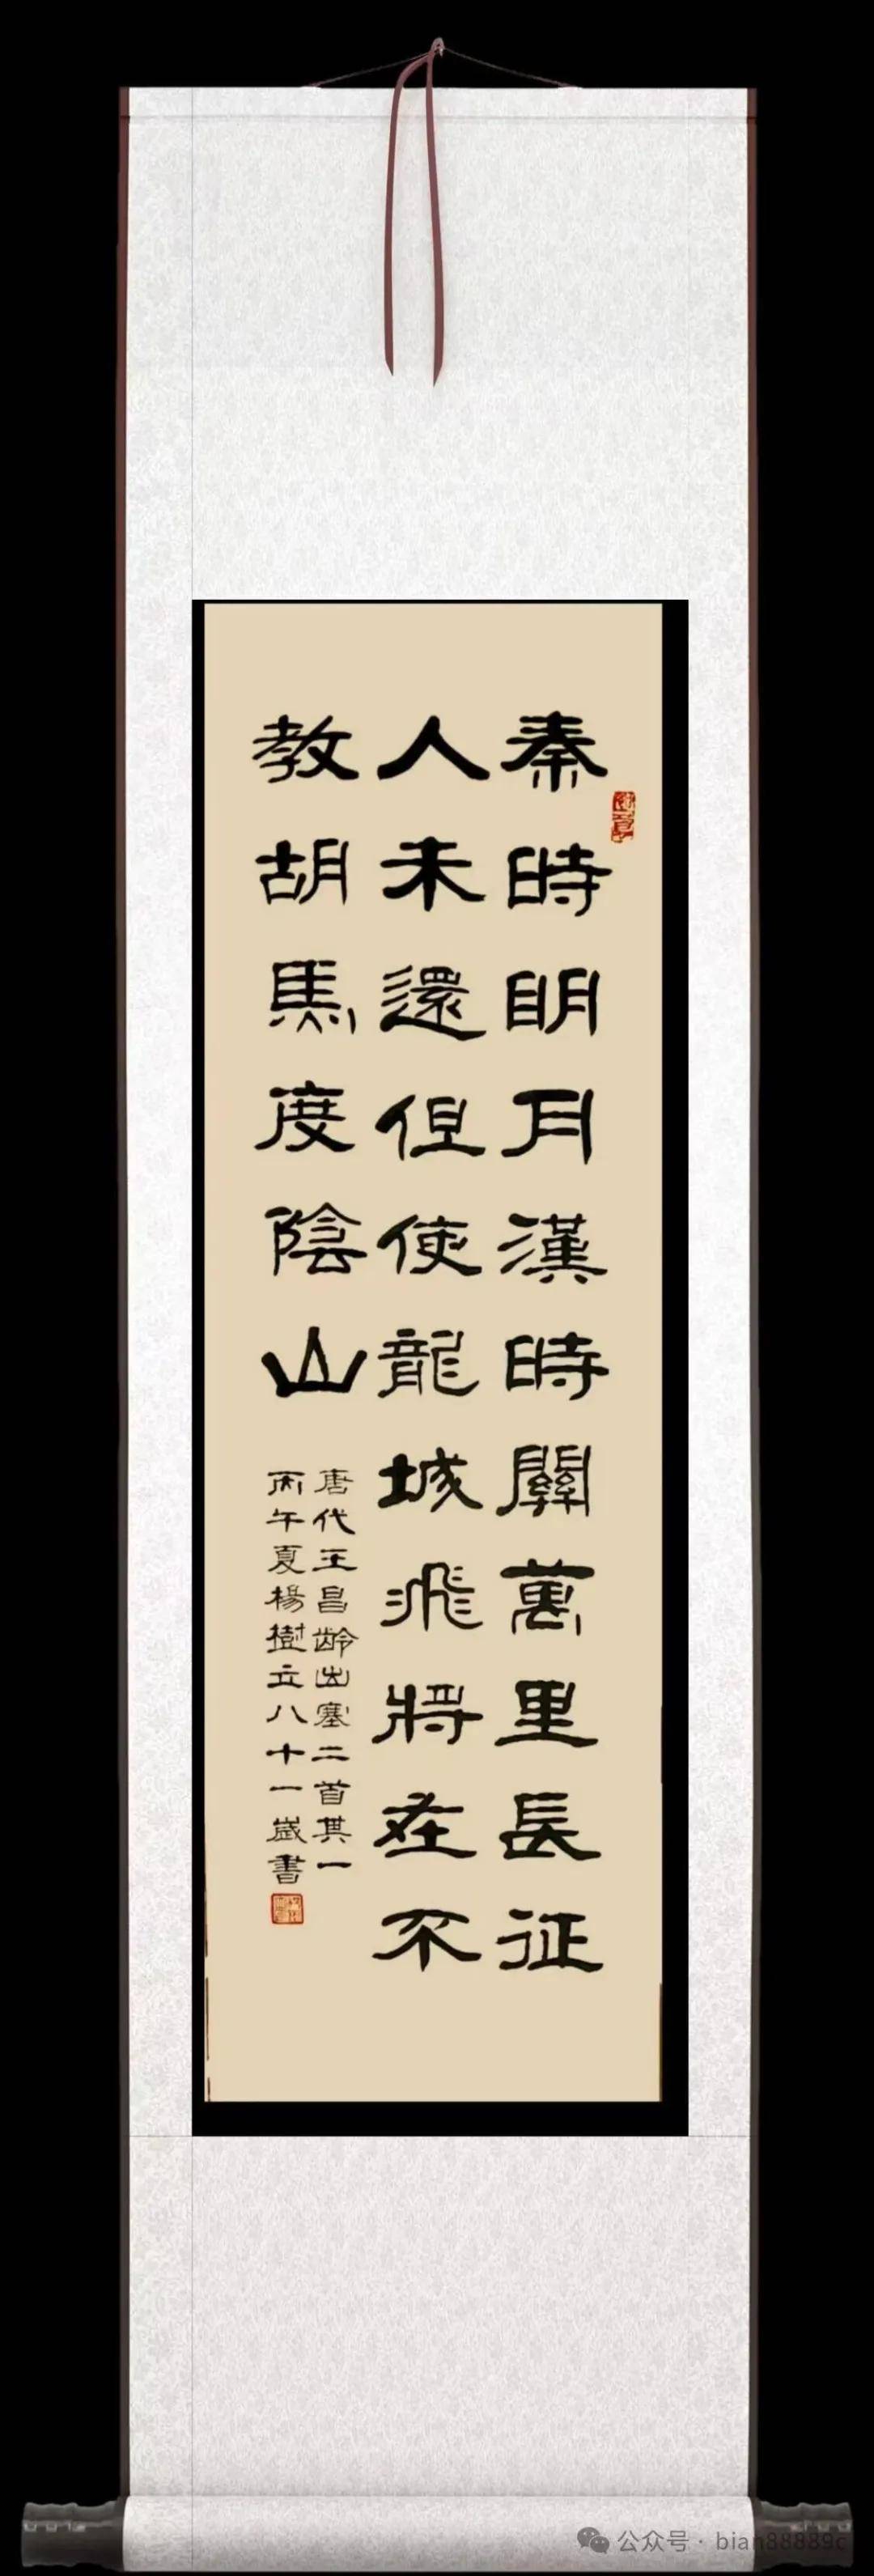 秦時明月漢時關萬里長征
人未還但使龍城飛將在不
教胡馬度陰山
唐代王昌龄出塞二首其一
丙午夏楊樹立八十一歲書
公众号 · bian88889c